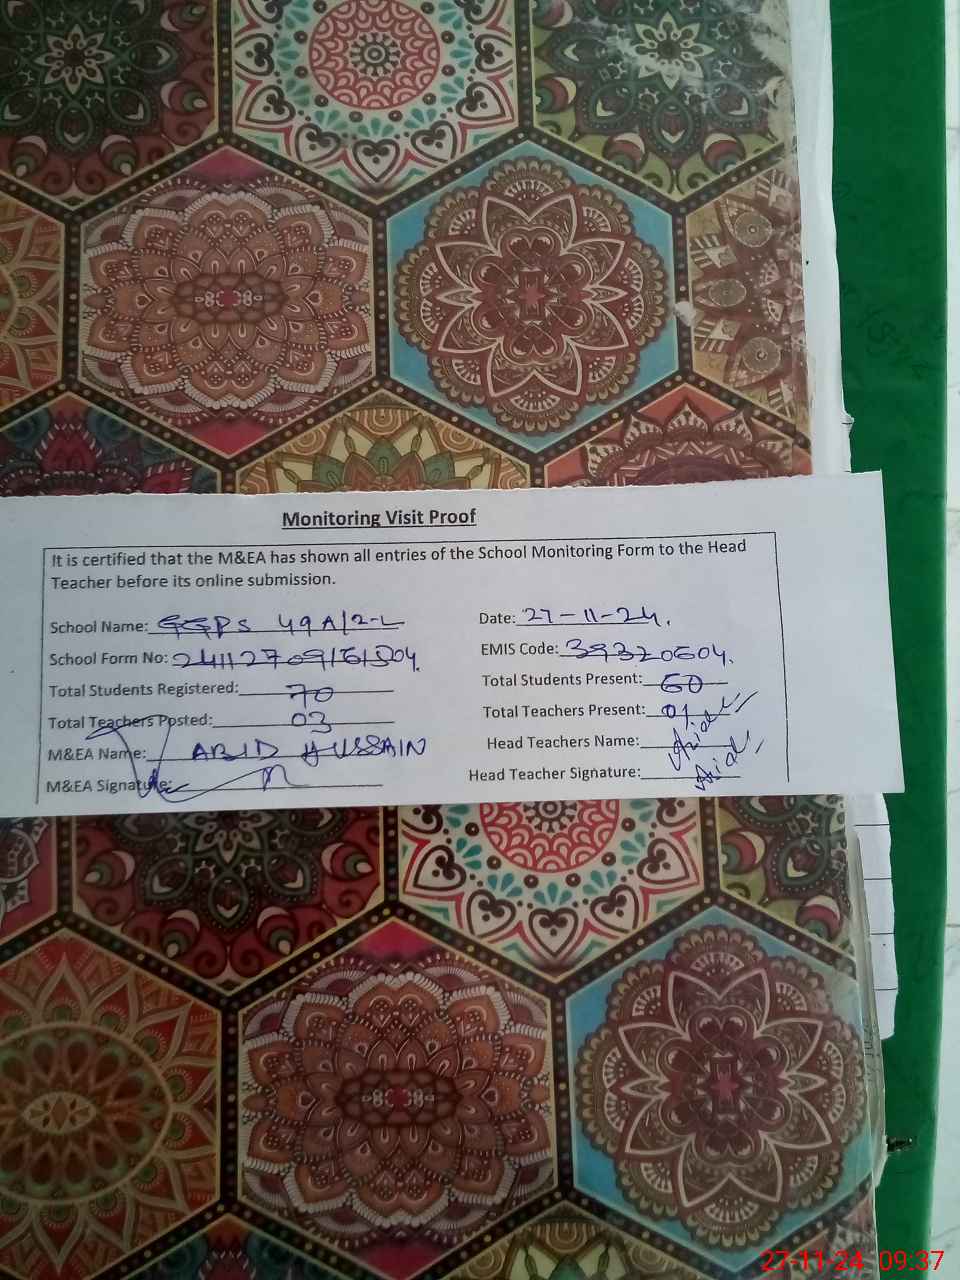 Monitoring Visit Proof
It is certified that the M&EA has shown all entries of the School Monitoring Form to the Head
Teacher before its online submission.
School Name: GGPS 49A/2-L Date: 27-11-24.
School Form No: EMIS Code: 39320604.
Total Students Registered: 70 Total Students Present: 60
Total Teachers Posted: 03 Total Teachers Present: 01
M&EA Name: ABID HUSSAIN Head Teachers Name:
M&EA Signature: Head Teacher Signature:
27-11-24 09:37